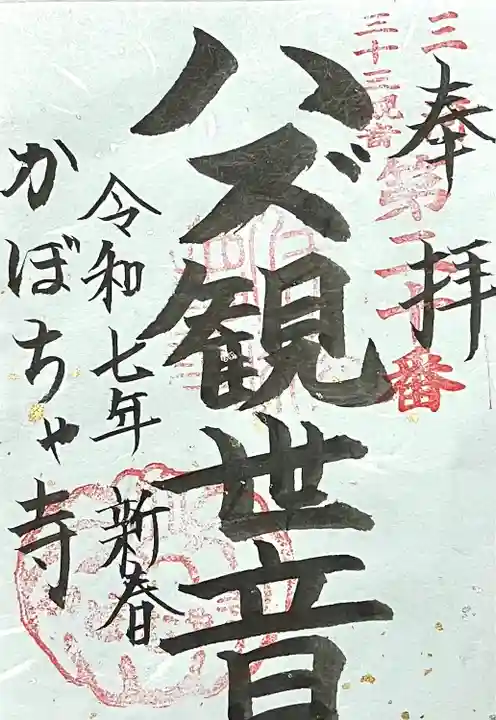 奉拝
三十三観音
第二十番
ハズ観世音
令和七年 新春
かぼちゃ寺